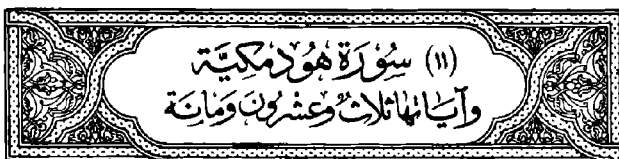 (١١) سُورَة هُود مَكيَّة
وَآيَاتهَا ثلاثٌ وَعشْرُونَ وَمَائة